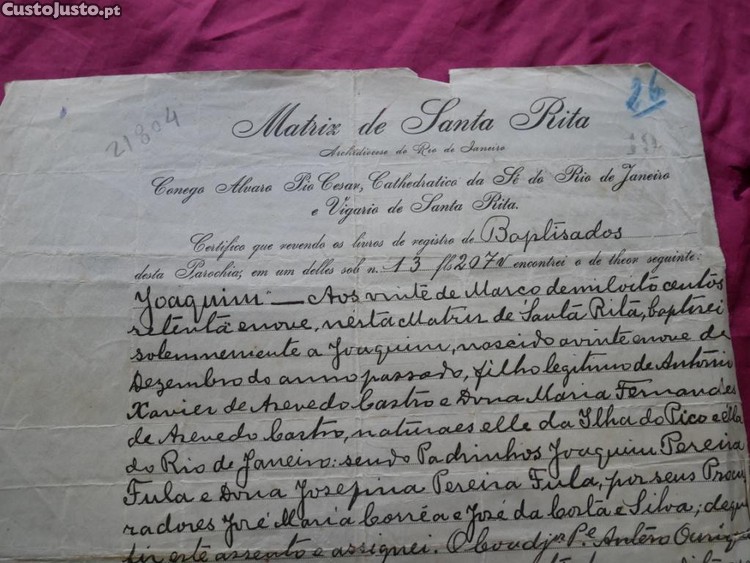 CustoJusto.pt
26
21804
19
Matriz de Santa Rita
Archidiocese do Rio de Janeiro
Conego Alvaro Pio Cesar, Cathedratico da Sé do Rio de Janeiro
e Vigario de Santa Rita.
Certifico que revendo os livros de registro de Baptisados
desta Parochia, em um delles sob n. 13 fls 207v encontrei o de theor seguinte:
Joaquim — Aos vinte de Março de mil oito centos
setenta e nove, nesta Matriz de Santa Rita, baptizei
solemnemente a Joaquim, nascido a vinte e nove de
Dezembro do anno passado, filho legitimo de Antonio
Xavier de Azevedo Castro e Dona Maria Fernandes
de Azevedo Castro, naturaes elle da Ilha do Pico e ella
do Rio de Janeiro: sendo Padrinhos Joaquim Pereira
Fula e Dona Josefina Pereira Fula, por seus Procu-
radores José Maria Corrêa e José da Costa e Silva; de que
fiz este assento e assignei. O Coadjor Pe. Antéro